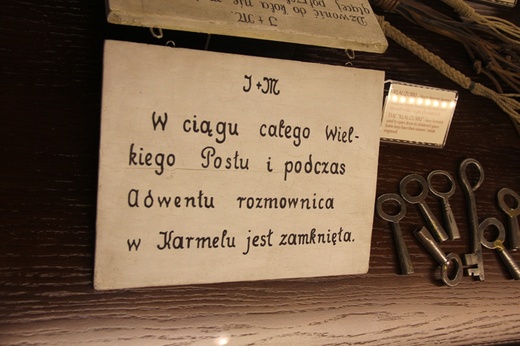 Dzwonić do koła nie
J + M.
J + M
W ciągu całego Wiel-
kiego Postu i podczas
Adwentu rozmownica
w Karmelu jest zamknięta.